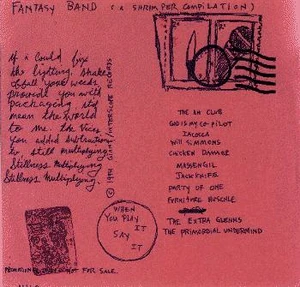 FANTASY BAND (a SHRIMPER COMPILATION)
if i could fix
the lighting, shake
off all your weeds,
provide you with
packaging, it'd
mean the world
to me. the voices
you added
to still multiplying.
Stillness multiplying
Stillness multiplying.
© 1994 INTERSCOPE RECORDS
THE AH CLUB
GOD IS MY CO-PILOT
ZACOCCA
WILL SIMMONS
CHICKEN DAMAGE
MASSENGIL
JACKKNIFE
PARTY OF ONE
FURNITURE HUSCHLE
THE EXTRA GLENNS
THE PRIMORDIAL UNDERMIND
WHEN
YOU PLAY
IT
SAY
IT
NOT FOR SALE.